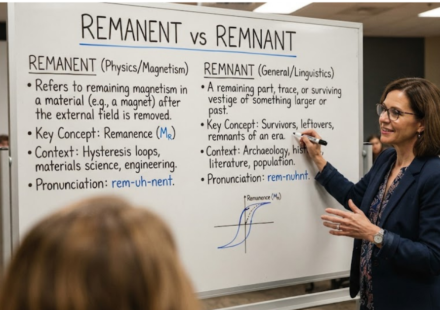 REMANENT vs REMNANT
REMANENT (Physics/Magnetism)
• Refers to remaining magnetism
in a material (e.g., a magnet) after
the external field is removed.
• Key Concept: Remanence (MR)
• Context: Hysteresis loops,
materials science, engineering.
• Pronunciation: rem-uh-nent.
REMNANT (General/Linguistics)
• A remaining part, trace, or surviving
vestige of something larger or
past.
• Key Concept: Survivors, leftovers,
remnants of an era.
• Context: Archaeology,
literature, population.
• Pronunciation: rem-nuhnt.
Remanence (MR)